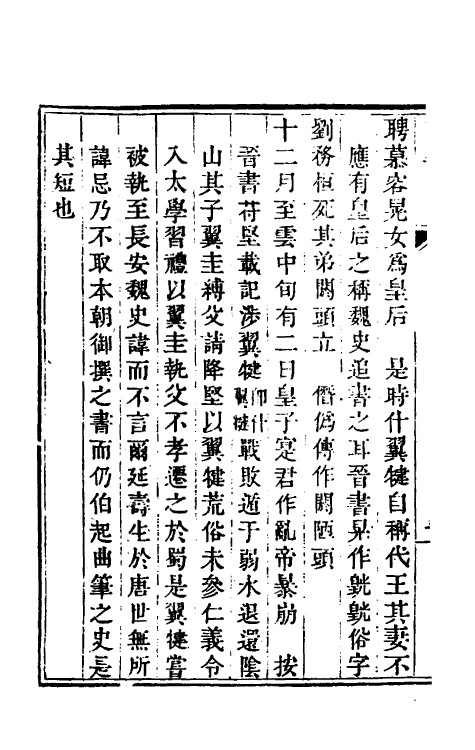 聘慕容晃女爲皇后　是時什翼犍自稱代王其妻不
應有皇后之稱魏史追書之耳晉書晃作皝皝俗字
劉務桓死其弟閼頭立　僭僞傳作閼陋頭
十二月至雲中旬有二日皇子寔君作亂帝暴崩　按
晉書苻堅載記涉翼犍卽什翼犍戰敗遁于弱水退還陰
山其子翼圭縛父請降堅以翼犍荒俗未參仁義令
入太學習禮以翼圭執父不孝遷之於蜀是翼犍嘗
被執至長安魏史諱而不言爾延壽生於唐世無所
諱忌乃不取本朝御撰之書而仍伯起曲筆之史是
其短也